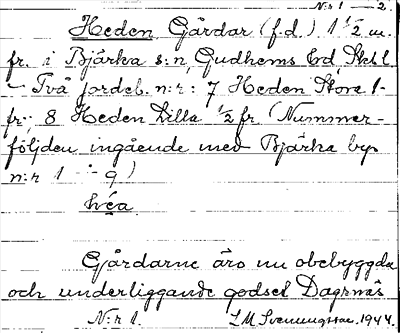 N:r 1 — 2.
Heden Gårdar (f.d.) 1 1/2 m.
fr. i Bjärka s:n, Gudhems hd, Skbl.
— Två jordeb. n:r: 7 Heden Stora 1-
fr; 8 Heden Lilla 1/2 fr (Nummer-
följden ingående med Bjärka by
n:r 1 — 9)
héa
Gårdarne äro nu obebyggda
och underliggande godset Dagsnäs
N:r 1. 1944.